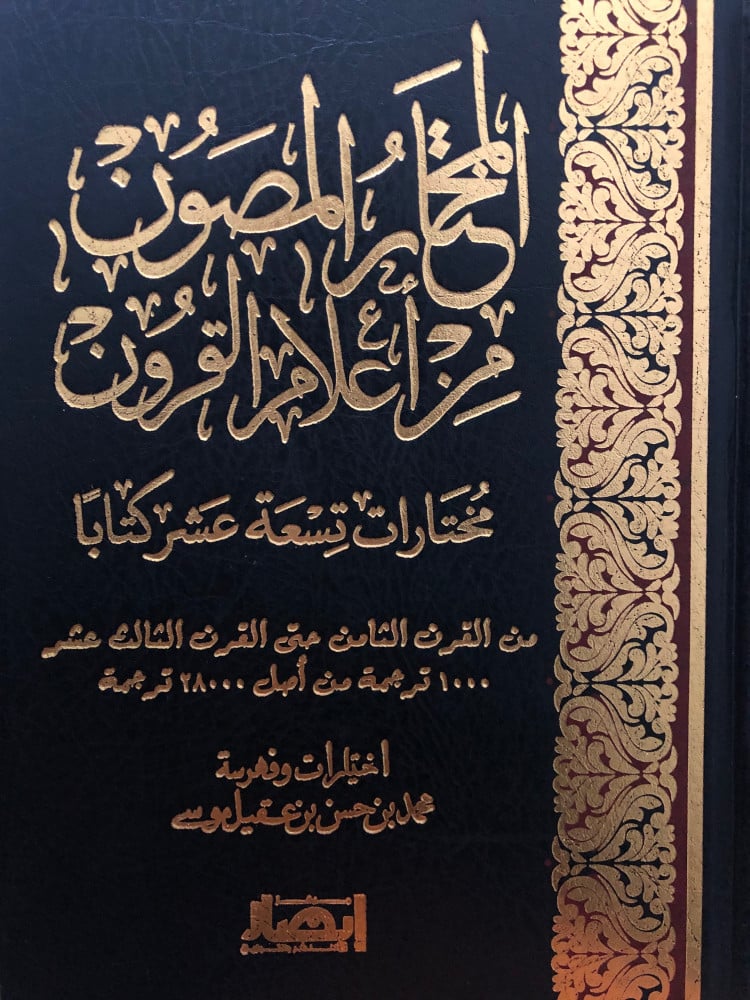 المختار المصون
من أعلام القرون
مُختَارات تِسْعَة عَشر كتَابًا
من القرن الثامن حتى القرن الثالث عشر
١٠٠٠ ترجمة من أصل ٢٨٠٠٠ ترجمة
اختيارات وفهرسة
محمد بن حسن بن عقيل موسى